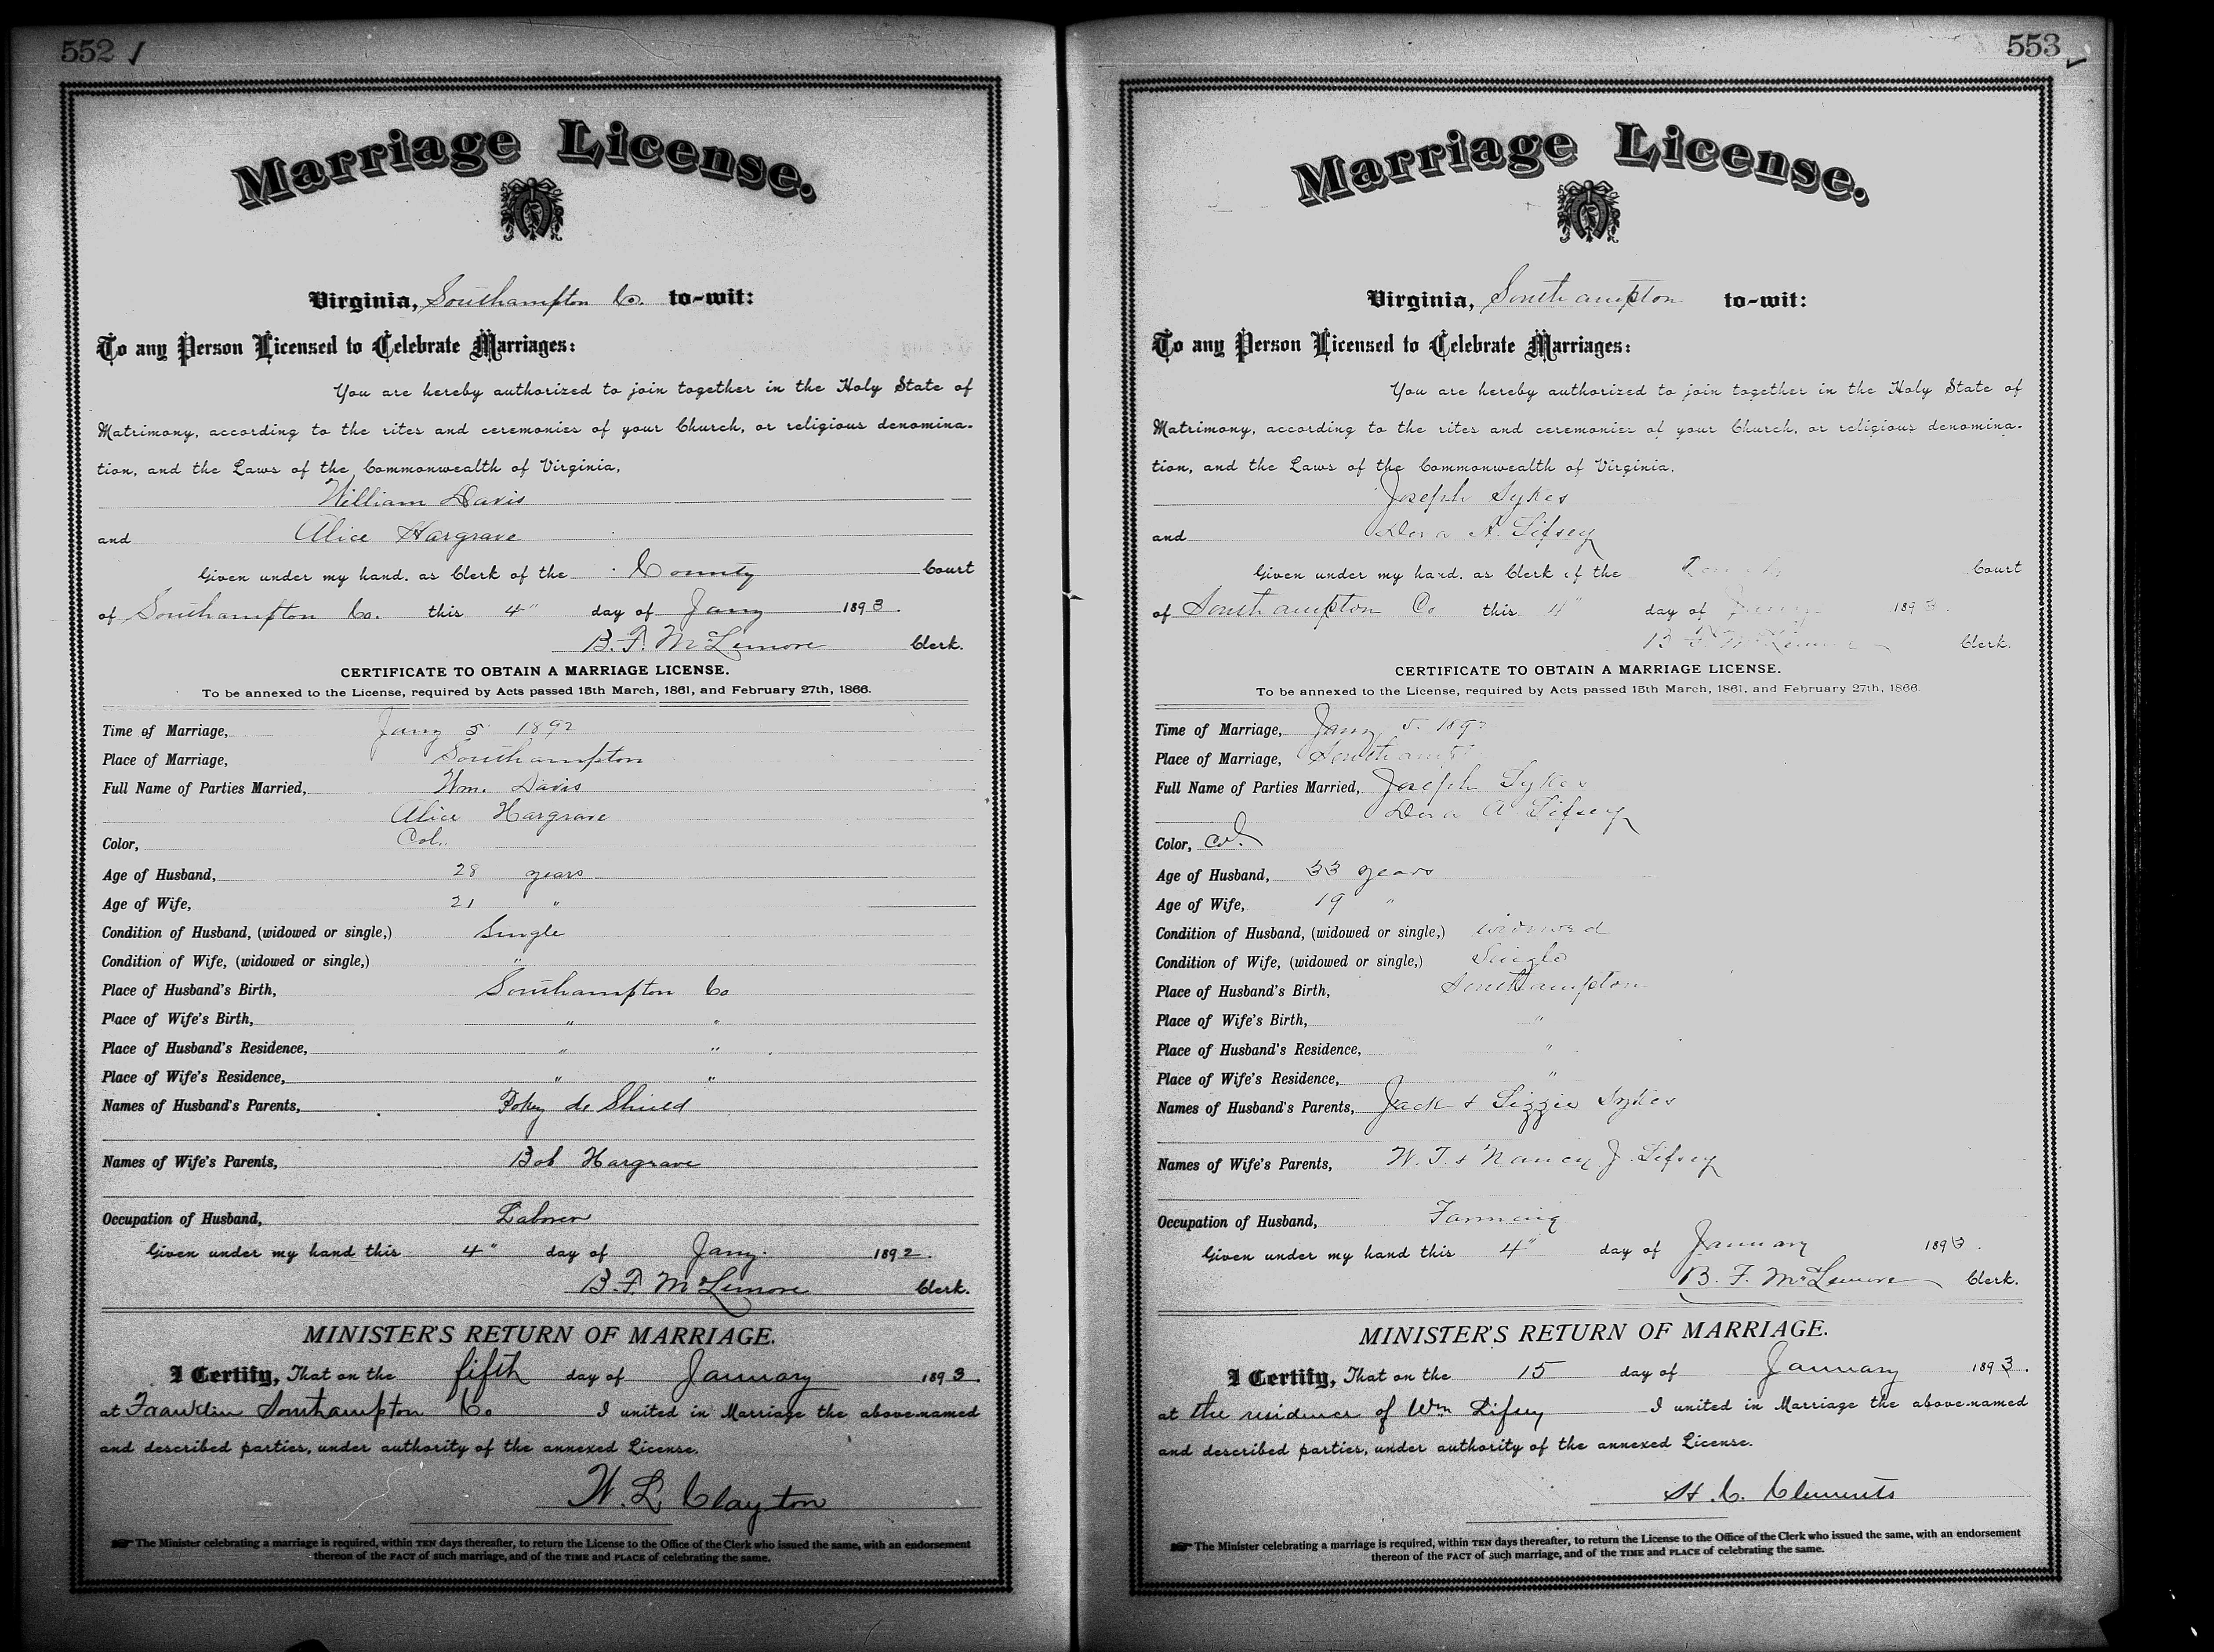 552
Marriage License.
Virginia, Southampton Co. to-wit:
To any Person Licensed to Celebrate Marriages:
You are hereby authorized to join together in the Holy State of
Matrimony, according to the rites and ceremonies of your Church, or religious denomina-
tion, and the Laws of the Commonwealth of Virginia,
William Davis
and Alice Hargrave
Given under my hand, as Clerk of the County Court
of Southampton Co. this 4" day of Jany 1893.
B. F. McLemore Clerk.
CERTIFICATE TO OBTAIN A MARRIAGE LICENSE.
To be annexed to the License, required by Acts passed 15th March, 1861, and February 27th, 1866.
Time of Marriage, Jany 5 1892
Place of Marriage, Southampton
Full Name of Parties Married, Wm. Davis
Alice Hargrave
Color, Col.
Age of Husband, 28 years
Age of Wife, 21 "
Condition of Husband, (widowed or single,) Single
Condition of Wife, (widowed or single,) "
Place of Husband's Birth, Southampton Co
Place of Wife's Birth, " "
Place of Husband's Residence, " "
Place of Wife's Residence, " "
Names of Husband's Parents, de Shield
Names of Wife's Parents, Bob Hargrave
Occupation of Husband, Laborer
Given under my hand this 4" day of Jany. 1892.
B. F. McLemore Clerk.
MINISTER'S RETURN OF MARRIAGE.
I Certify, That on the fifth day of January 1893.
at Franklin Southampton Co I united in Marriage the above-named
and described parties, under authority of the annexed License.
W. L. Clayton
The Minister celebrating a marriage is required, within TEN days thereafter, to return the License to the Office of the Clerk who issued the same, with an endorsement
thereon of the FACT of such marriage, and of the TIME and PLACE of celebrating the same.
553
Marriage License.
Virginia, Southampton to-wit:
To any Person Licensed to Celebrate Marriages:
You are hereby authorized to join together in the Holy State of
Matrimony, according to the rites and ceremonies of your Church, or religious denomina-
tion, and the Laws of the Commonwealth of Virginia,
Joseph Sykes
and Dora A. Lifsey
Given under my hand, as Clerk of the County Court
of Southampton Co this 4" day of Jany 1893.
B F McLemore Clerk.
CERTIFICATE TO OBTAIN A MARRIAGE LICENSE.
To be annexed to the License, required by Acts passed 15th March, 1861, and February 27th, 1866.
Time of Marriage, Jany 5. 1892
Place of Marriage, Southampton
Full Name of Parties Married, Joseph Sykes
Dora A. Lifsey
Color, Col.
Age of Husband, 33 years
Age of Wife, 19 "
Condition of Husband, (widowed or single,) widowed
Condition of Wife, (widowed or single,) Single
Place of Husband's Birth, Southampton
Place of Wife's Birth, "
Place of Husband's Residence, "
Place of Wife's Residence, "
Names of Husband's Parents, Jack & Lizzie Sykes
Names of Wife's Parents, W. T. & Nancy J. Lifsey
Occupation of Husband, Farming
Given under my hand this 4" day of January 1893.
B. F. McLemore Clerk.
MINISTER'S RETURN OF MARRIAGE.
I Certify, That on the 15 day of January 1893.
at the residence of Wm Lifsey I united in Marriage the above-named
and described parties, under authority of the annexed License.
H. C. Clements
The Minister celebrating a marriage is required, within TEN days thereafter, to return the License to the Office of the Clerk who issued the same, with an endorsement
thereon of the FACT of such marriage, and of the TIME and PLACE of celebrating the same.